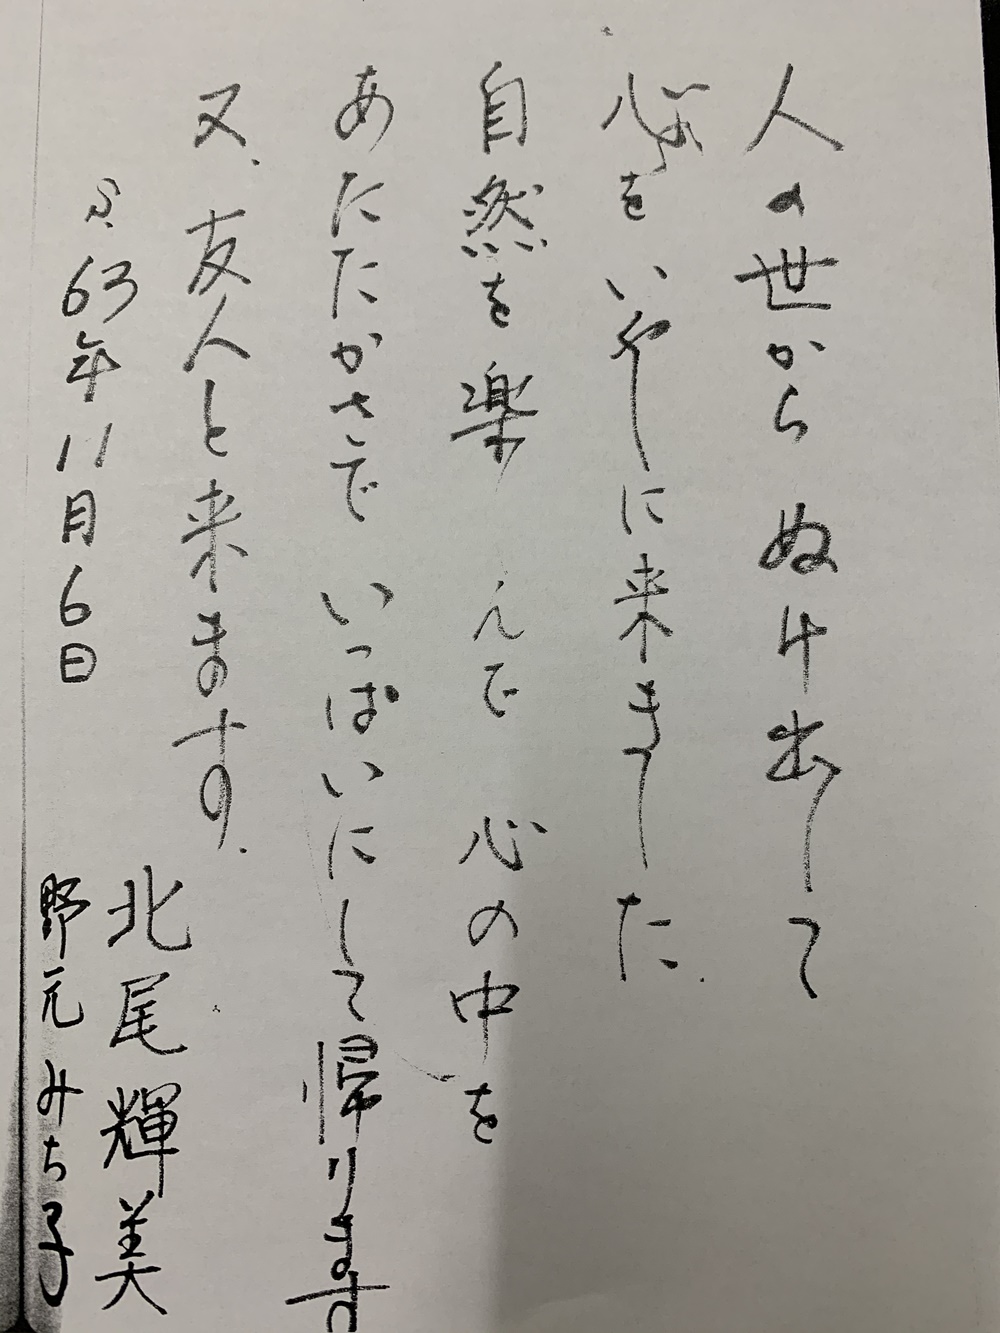 人の世から ぬけ出して
心をいやしに来ました.
自然を楽しんで 心の中を
あたたかさで いっぱいにして帰ります
又、友人と来ます.
S.63年11月6日
北尾輝美
野元みち子